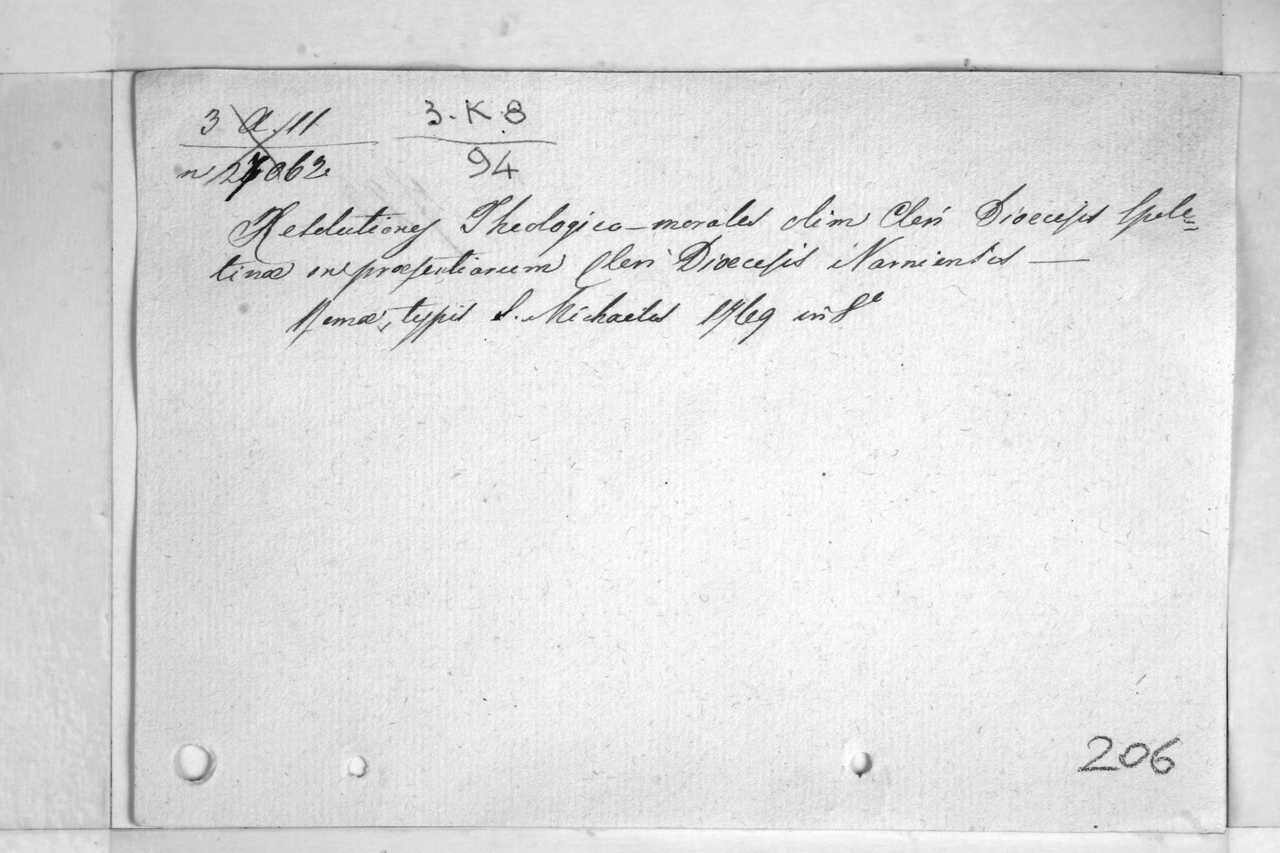 3 A. 11 3. K. 8
n 27062 94
Resolutiones Theologico-morales olim Cleri Diœcesis Spole=
tinæ in præsentiarum Cleri Diœcesis Narniensis —
Romæ, typis S. Michaelis 1769 in 8°
206